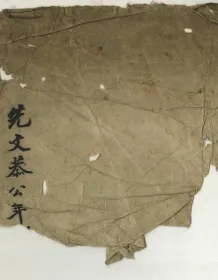 先文恭公年